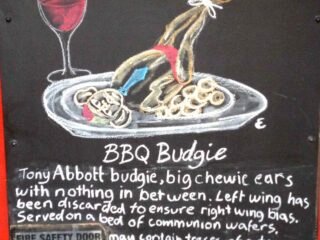 BBQ Budgie
Tony Abbott budgie, big chewic ears
with nothing in between. Left wing has
been discarded to ensure right wing bias.
Served on a bed of communion wafers.
FIRE SAFETY DOOR
may contain traces